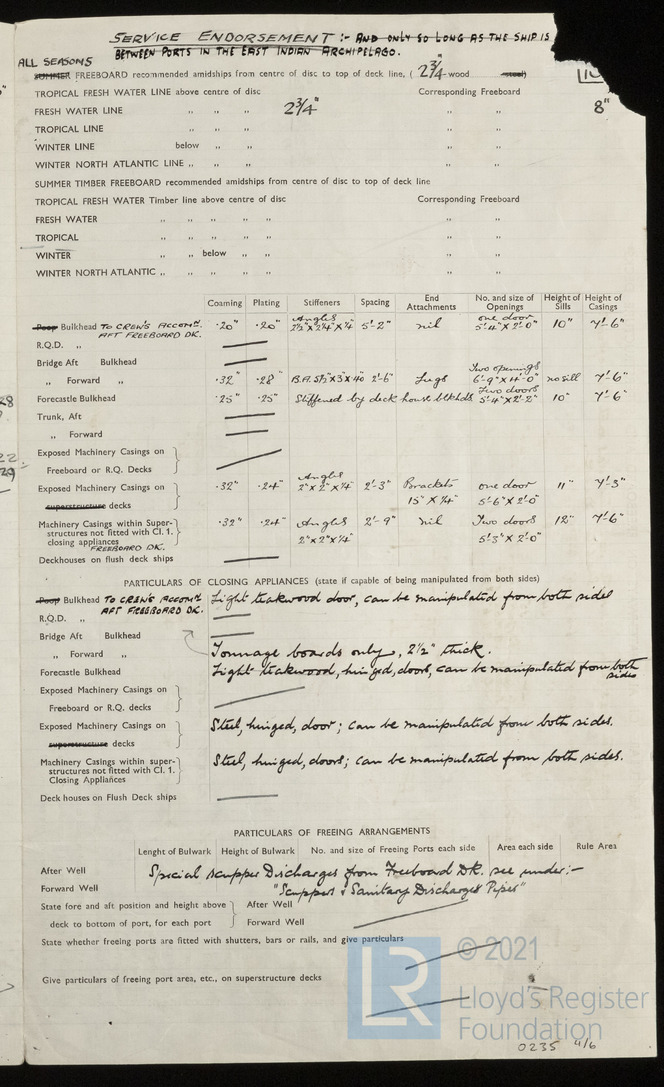 SERVICE ENDORSEMENT :- AND ONLY SO LONG AS THE SHIP IS
BETWEEN PORTS IN THE EAST INDIAN ARCHIPELAGO.
ALL SEASONS
SUMMER FREEBOARD recommended amidships from centre of disc to top of deck line, ( 2¾" wood steel)
TROPICAL FRESH WATER LINE above centre of disc Corresponding Freeboard
FRESH WATER LINE „ „ „ 2¾" „ „ 8"
TROPICAL LINE „ „ „ „ „
WINTER LINE below „ „ „ „
WINTER NORTH ATLANTIC LINE „ „ „ „ „
SUMMER TIMBER FREEBOARD recommended amidships from centre of disc to top of deck line
TROPICAL FRESH WATER Timber line above centre of disc Corresponding Freeboard
FRESH WATER „ „ „ „ „ „
TROPICAL „ „ „ „ „ „
WINTER „ „ below „ „ „ „
WINTER NORTH ATLANTIC „ „ „ „ „ „
Coaming Plating Stiffeners Spacing End Attachments No. and size of Openings Height of Sills Height of Casings
Poop Bulkhead TO CREW'S ACCOMN. ·20" ·20" Angles 2½"X2¼"X¼ 5'-2" nil one door 5'-4"X2'-0" 10" 7'-6"
AFT FREEBOARD DK.
R.Q.D. „
Bridge Aft Bulkhead
„ Forward „ ·32" ·28" B.A. 5½"X3"X·40 2'-6" Lugs Two openings 6'-9"X4'-0" no sill 7'-6"
Forecastle Bulkhead ·25" ·25" Stiffened by deck house blkhds Two doors 5'-4"X2'-2" 10" 7'-6"
Trunk, Aft
„ Forward
Exposed Machinery Casings on
Freeboard or R.Q. Decks
Exposed Machinery Casings on ·32" ·24" Angles 2"X2"X¼" 2'-3" Brackets one door 11" 7'-3"
superstructure decks 15"X¼" 5'-6"X2'-0"
Machinery Casings within Super- ·32" ·24" Angles 2'-9" nil Two doors 12" 7'-6"
structures not fitted with Cl. 1. 2"X2"X¼" 5'-3"X2'-0"
closing appliances
FREEBOARD DK.
Deckhouses on flush deck ships
PARTICULARS OF CLOSING APPLIANCES (state if capable of being manipulated from both sides)
Poop Bulkhead TO CREW'S ACCOMN. Light teakwood door, can be manipulated from both sides
AFT FREEBOARD DK.
R.Q.D. „
Bridge Aft Bulkhead
„ Forward „ Tonnage boards only, 2½" thick.
Forecastle Bulkhead Light teakwood, hinged, doors, can be manipulated from both sides
Exposed Machinery Casings on
Freeboard or R.Q. decks
Exposed Machinery Casings on Steel, hinged, door; can be manipulated from both sides.
superstructure decks
Machinery Casings within super- Steel, hinged, doors; can be manipulated from both sides.
structures not fitted with Cl. 1.
Closing Appliances
Deck houses on Flush Deck ships
PARTICULARS OF FREEING ARRANGEMENTS
Lenght of Bulwark Height of Bulwark No. and size of Freeing Ports each side Area each side Rule Area
After Well Special scupper Discharges from Freeboard DK. see under:-
Forward Well "Scuppers & Sanitary Discharge Pipes"
State fore and aft position and height above After Well
deck to bottom of port, for each port Forward Well
State whether freeing ports are fitted with shutters, bars or rails, and give particulars
Give particulars of freeing port area, etc., on superstructure decks
LR © 2021
Lloyd's Register
Foundation
0235 4/6